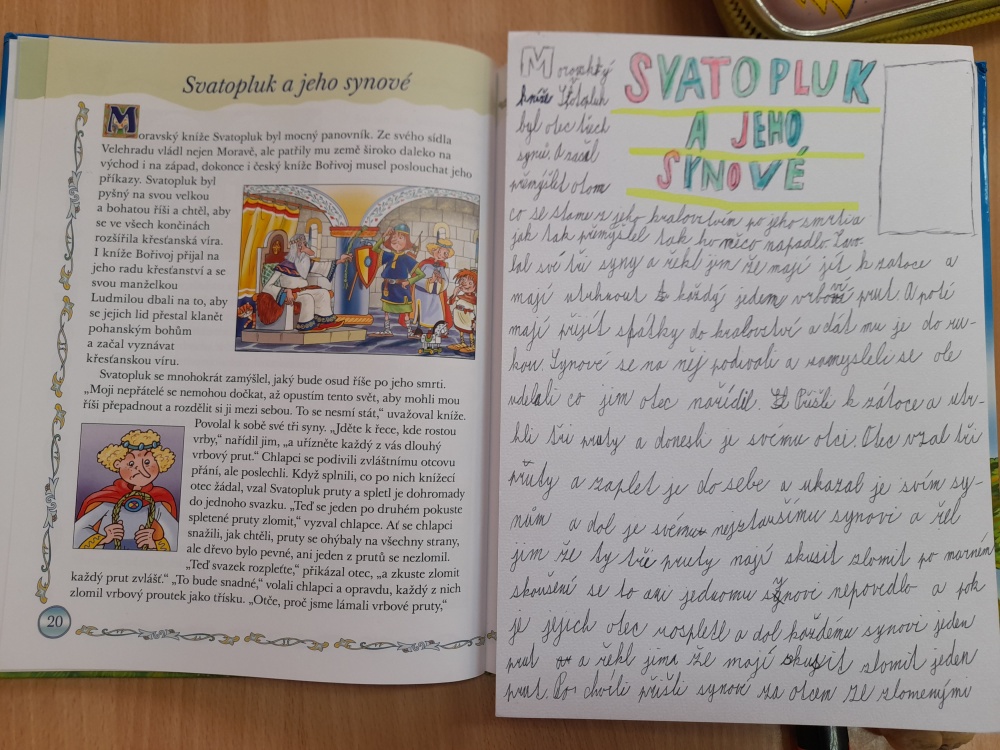 Svatopluk a jeho synové
Moravský kníže Svatopluk byl mocný panovník. Ze svého sídla
Velehradu vládl nejen Moravě, ale patřily mu země široko daleko na
východ i na západ, dokonce i český kníže Bořivoj musel poslouchat jeho
příkazy. Svatopluk byl
pyšný na svou velkou
a bohatou říši a chtěl, aby
se ve všech končinách
rozšířila křesťanská víra.
I kníže Bořivoj přijal na
jeho radu křesťanství a se
svou manželkou
Ludmilou dbali na to, aby
se jejich lid přestal klanět
pohanským bohům
a začal vyznávat
křesťanskou víru.
Svatopluk se mnohokrát zamýšlel, jaký bude osud říše po jeho smrti.
„Moji nepřátelé se nemohou dočkat, až opustím tento svět, aby mohli mou
říši přepadnout a rozdělit si ji mezi sebou. To se nesmí stát,“ uvažoval kníže.
Povolal k sobě své tři syny. „Jděte k řece, kde rostou
vrby,“ nařídil jim, „a uřízněte každý z vás dlouhý
vrbový prut.“ Chlapci se podivili zvláštnímu otcovu
přání, ale poslechli. Když splnili, co po nich knížecí
otec žádal, vzal Svatopluk pruty a spletl je dohromady
do jednoho svazku. „Teď se jeden po druhém pokuste
spletené pruty zlomit,“ vyzval chlapce. Ať se chlapci
snažili, jak chtěli, pruty se ohýbaly na všechny strany,
ale dřevo bylo pevné, ani jeden z prutů se nezlomil.
„Teď svazek rozpleťte,“ přikázal otec, „a zkuste zlomit
každý prut zvlášť.“ „To bude snadné,“ volali chlapci a opravdu, každý z nich
zlomil vrbový proutek jako třísku. „Otče, proč jsme lámali vrbové pruty,“
20
SVATOPLUK
A JEHO
SYNOVÉ
kníže
byl otec třech
synů. A začal
přemýšlet otom
co se stane z jeho kralovztvím po jeho smrti a
jak tak přemýšlel tak ho něco napadlo. Zavo-
lal své tři syny a řekl jim že mají jít k zátoce a
mají utrhnout každý jeden vrbový prut. A poté
mají přijít spátky do kralovství a dát mu je do ru-
kou. Synové se na něj podivali a zamysleli se ale
udělali co jim otec nařídil. Přišli k zátoce a utr-
hli tři pruty a donesli je svému otci. Otec vzal tři
pruty a zaplet je do sebe a ukazal je svím sy-
nům a dal je svému nejstaršímu synovi a řekl
jim že ty tři pruty mají skusit zlomit po marném
skoušení se to ani jednomu synovi nepovedlo a pak
je jejich otec rospletl a dal každému synovi jeden
prut a řekl jima že mají skusit zlomit jeden
prut. Po chvíli přišli synové za otcem ze zlomenými